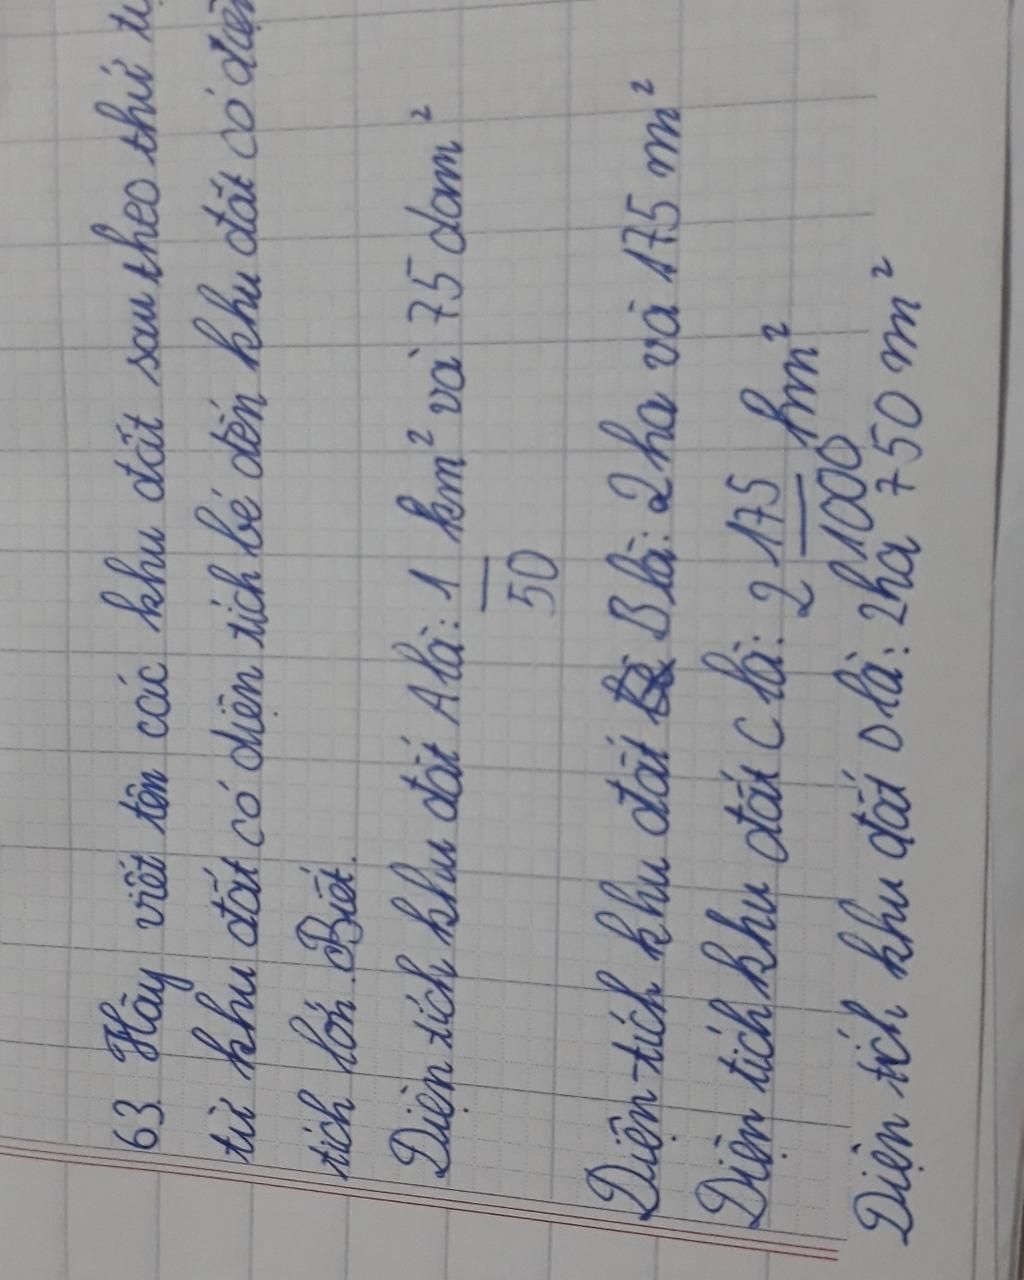 63. Hãy viết tên các khu đất sau theo thứ
từ khu đất có diện tích bé đến khu đất có
tích lớn. Biết.
Diện tích khu đất A là: 1/50 km² và 75 dam²
Diện tích khu đất B là: 2 ha và 175 m²
Diện tích khu đất C là: 2 175/1000 hm²
Diện tích khu đất D là: 2ha 750 m²